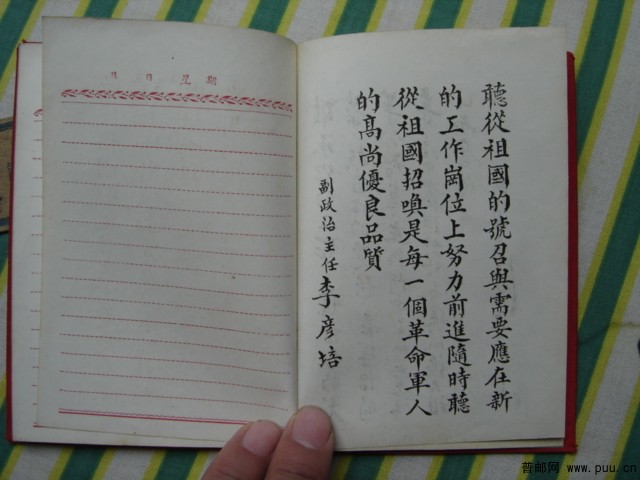 月 日 星期
聽從祖國的號召與需要應在新
的工作崗位上努力前進隨時聽
從祖國招喚是每一個革命軍人
的高尚優良品質
副政治主任李彥培
普邮网 www.puu.cn